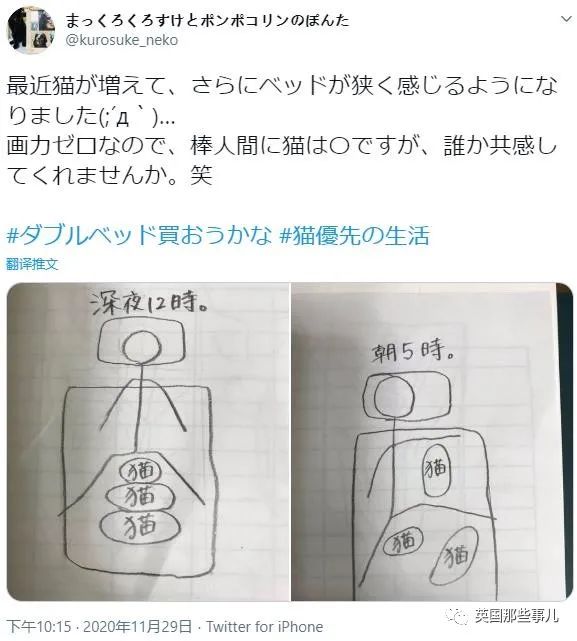 まっくろくろすけとポンポコリンのぽんた
@kurosuke_neko
最近猫が増えて、さらにベッドが狭く感じるようにな
りました(;´д｀)...
画力ゼロなので、棒人間に猫は〇ですが、誰か共感し
てくれませんか。笑
#ダブルベッド買おうかな #猫優先の生活
翻译推文
深夜12時。
猫
猫
猫
朝5時。
猫
猫
猫
下午10:15 · 2020年11月29日 · Twitter for iPhone
英国那些事儿